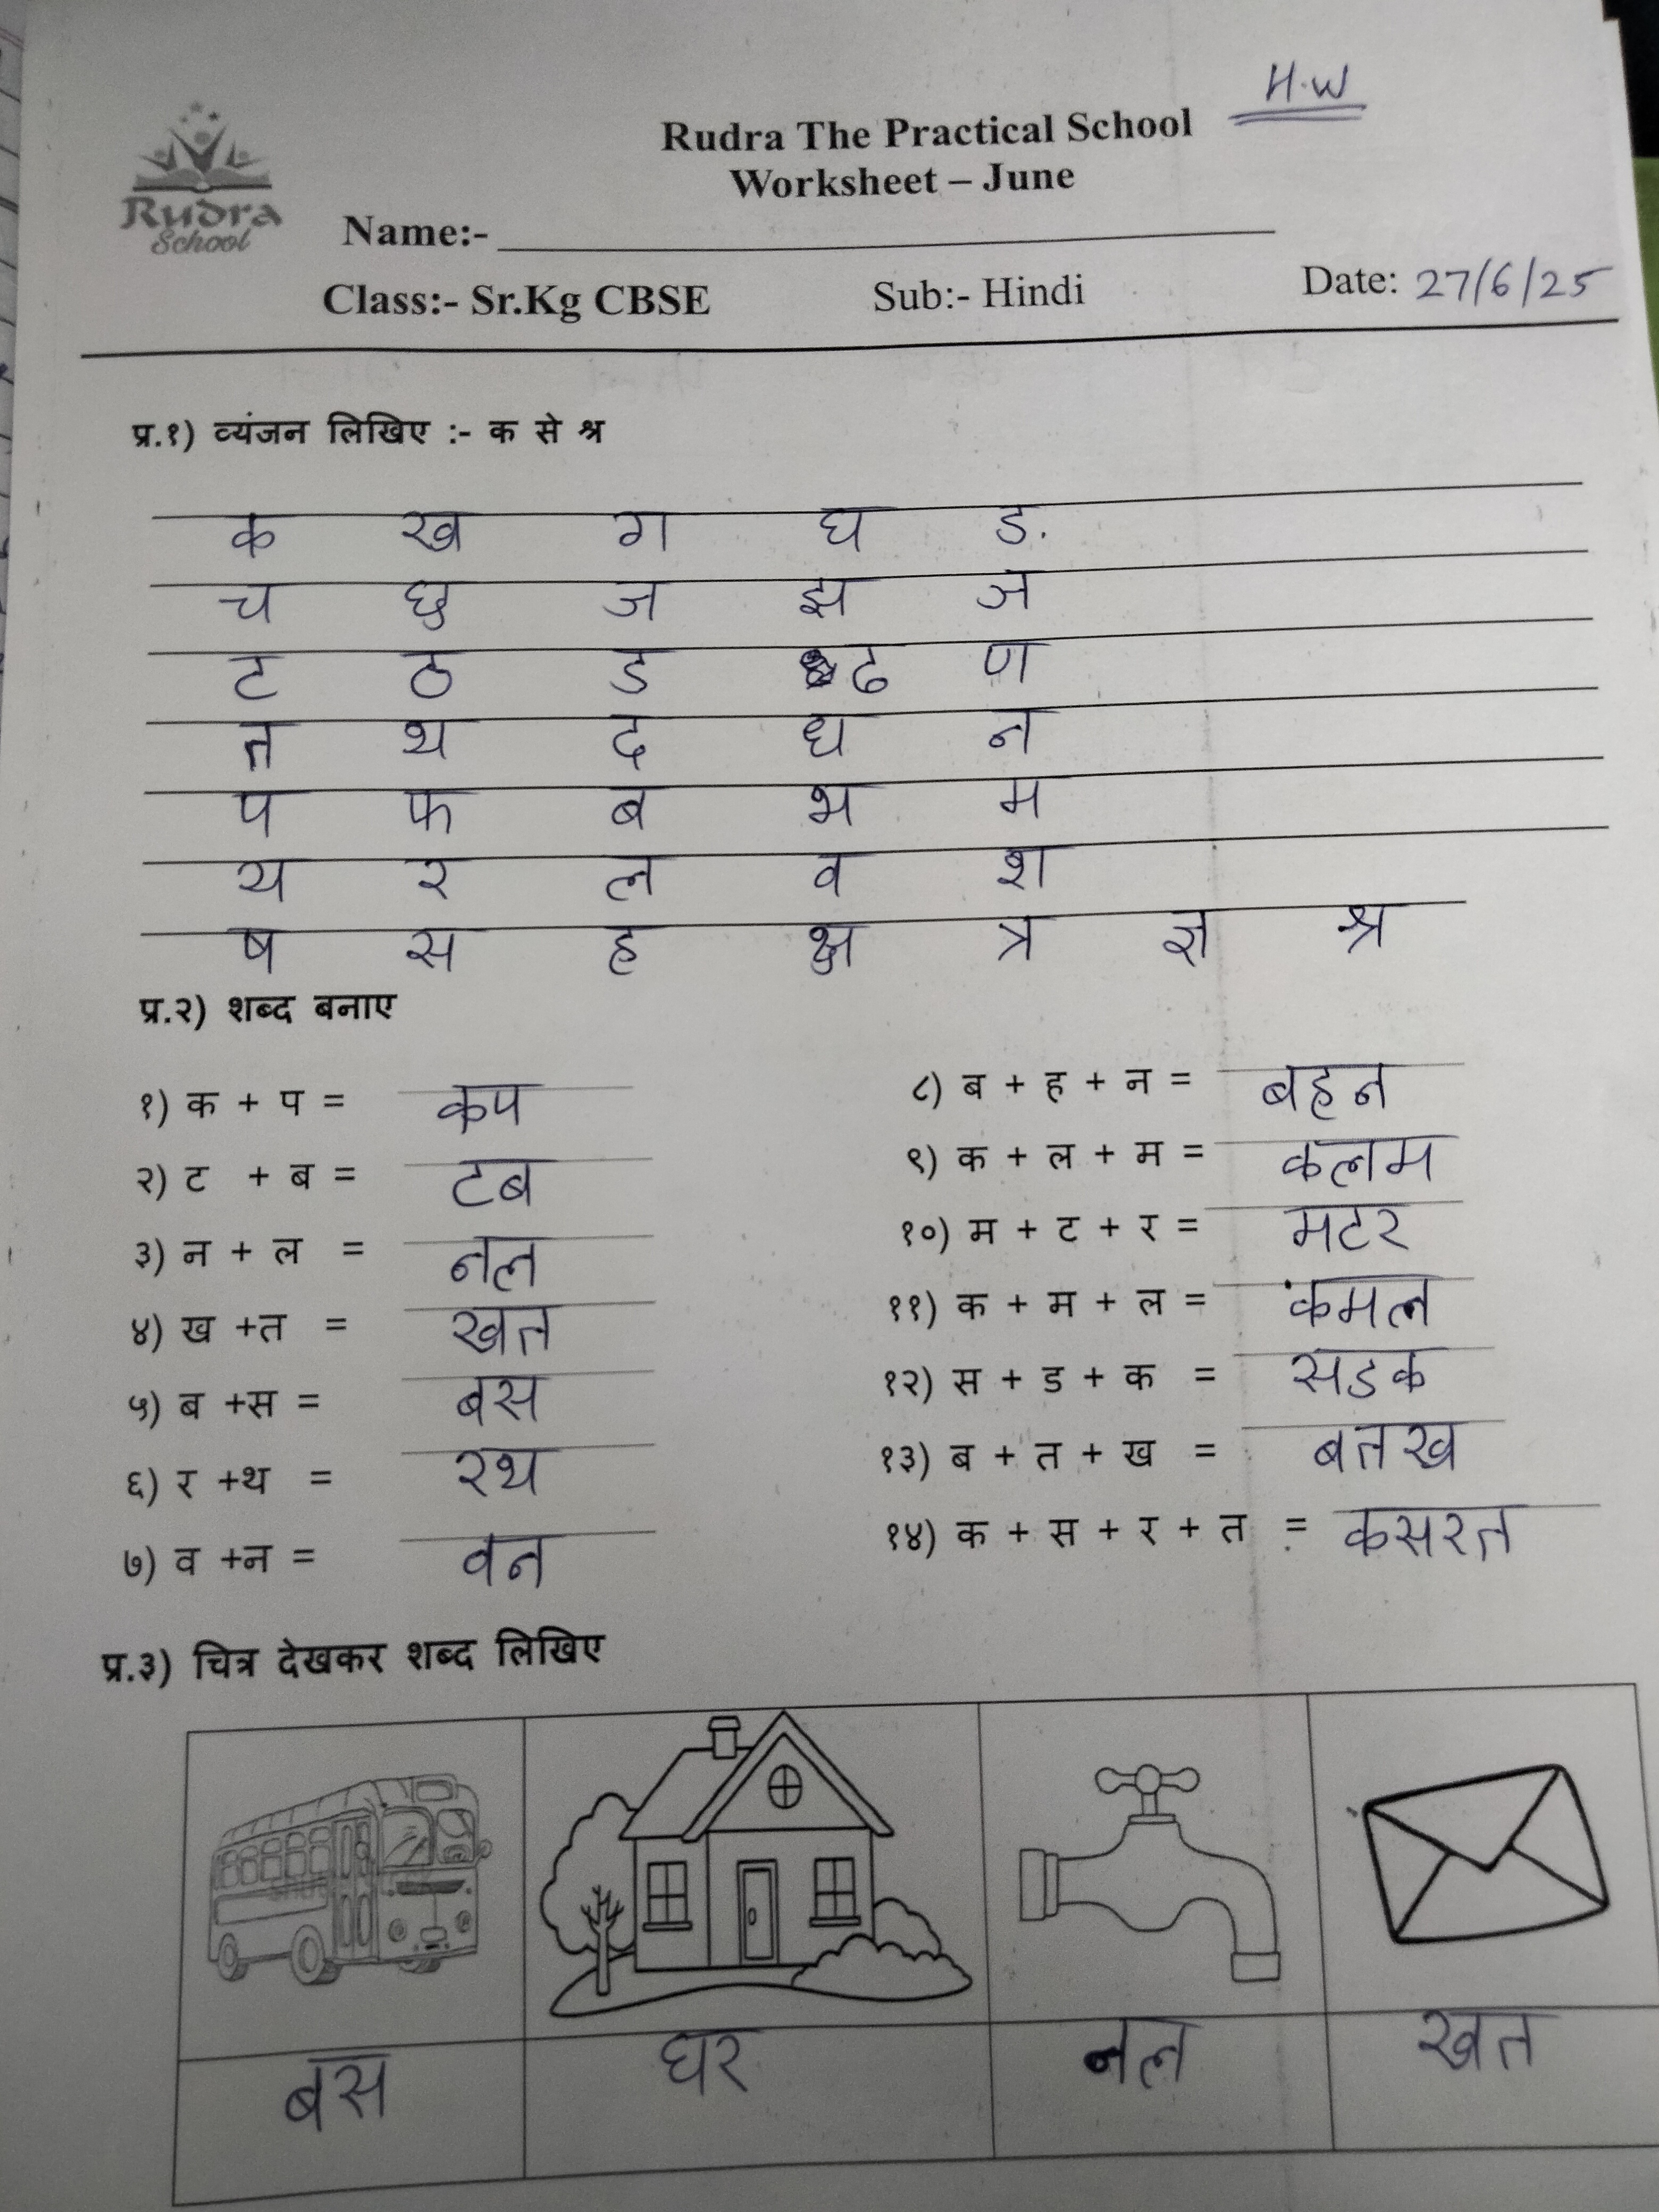 H.W
Rudra The Practical School
Worksheet – June
Rudra
School
Name:-
Class:- Sr.Kg CBSE Sub:- Hindi Date: 27/6/25
प्र.१) व्यंजन लिखिए :- क से श्र
क ख ग घ ड.
च छ ज झ ञ
ट ठ ड ढ ण
त थ द ध न
प फ ब भ म
य र ल व श
ष स ह क्ष त्र ज्ञ श्र
प्र.२) शब्द बनाए
१) क + प = कप
२) ट + ब = टब
३) न + ल = नल
४) ख +त = खत
५) ब +स = बस
६) र +थ = रथ
७) व +न = वन
८) ब + ह + न = बहन
९) क + ल + म = कलम
१०) म + ट + र = मटर
११) क + म + ल = कमल
१२) स + ड + क = सडक
१३) ब + त + ख = बतख
१४) क + स + र + त = कसरत
प्र.३) चित्र देखकर शब्द लिखिए
बस घर नल खत